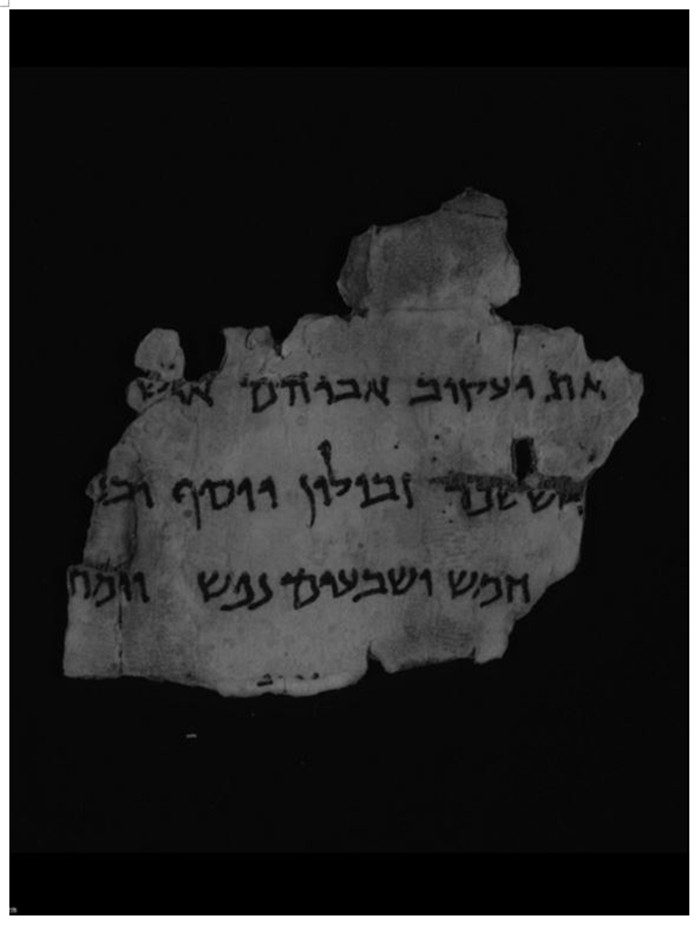 את יעקוב אביהם איש
יששכר זבולון יוסף ובנ
חמש ושבעים נפש וימת